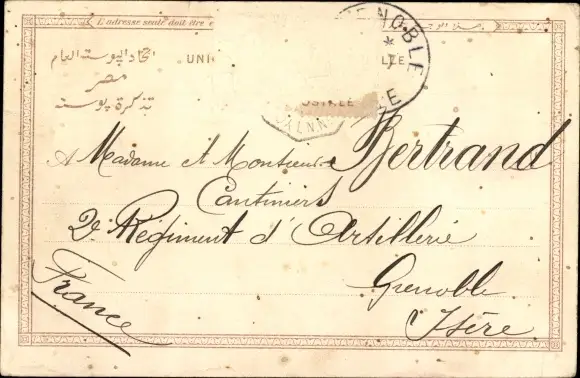 L'adresse seule doit être
اتحاد البوسته العام
UNI
مصر
تذكرة بوسته
NOBLE
A Madame et Monsieur Bertrand
Cantiniers
2e Régiment d'Artillerie
Grenoble
Isère
France